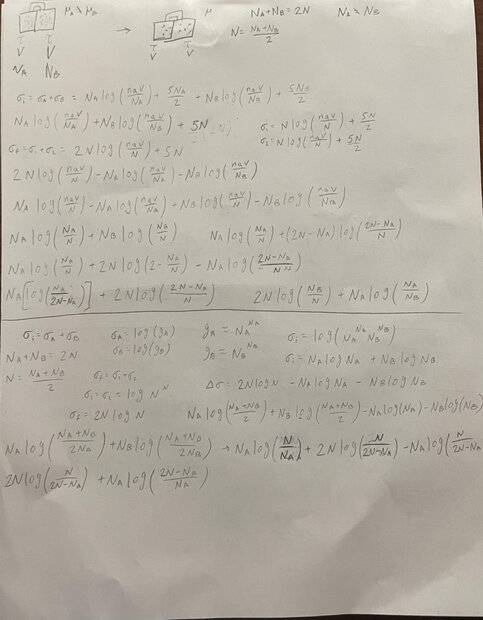 μ_A > μ_B → μ N_A+N_B = 2N N_A > N_B
τ τ τ τ N = (N_A+N_B)/2
V V V V
N_A N_B
σ_i = σ_A+σ_B = N_A log(n_Q V/N_A) + 5N_A/2 + N_B log(n_Q V/N_B) + 5N_B/2
N_A log(n_Q V/N_A) + N_B log(n_Q V/N_B) + 5N σ_1 = N log(n_Q V/N) + 5N/2
σ_f = σ_1+σ_2 = 2N log(n_Q V/N) + 5N σ_2 = N log(n_Q V/N) + 5N/2
2N log(n_Q V/N) - N_A log(n_Q V/N_A) - N_B log(n_Q V/N_B)
N_A log(n_Q V/N) - N_A log(n_Q V/N_A) + N_B log(n_Q V/N) - N_B log(n_Q V/N_B)
N_A log(N_A/N) + N_B log(N_B/N) N_A log(N_A/N) + (2N-N_A) log((2N-N_A)/N)
N_A log(N_A/N) + 2N log(2 - N_A/N) - N_A log((2N-N_A)/N)
N_A[log(N_A/(2N-N_A))] + 2N log((2N-N_A)/N) 2N log(N_B/N) + N_A log(N_A/N_B)
σ_i = σ_A+σ_B σ_A = log(g_A) g_A = N_A^{N_A} σ_i = log(N_A^{N_A} N_B^{N_B})
N_A+N_B = 2N σ_B = log(g_B) g_B = N_B^{N_B} σ_i = N_A log N_A + N_B log N_B
N = (N_A+N_B)/2 σ_f = σ_1+σ_2
σ_1 = σ_2 = log N^N Δσ = 2N log N - N_A log N_A - N_B log N_B
σ_f = 2N log N N_A log((N_A+N_B)/2) + N_B log((N_A+N_B)/2) - N_A log(N_A) - N_B log(N_B)
N_A log((N_A+N_B)/2N_A) + N_B log((N_A+N_B)/2N_B) → N_A log(N/N_A) + 2N log(N/(2N-N_A)) - N_A log(N/(2N-N_A
2N log(N/(2N-N_A)) + N_A log((2N-N_A)/N_A)